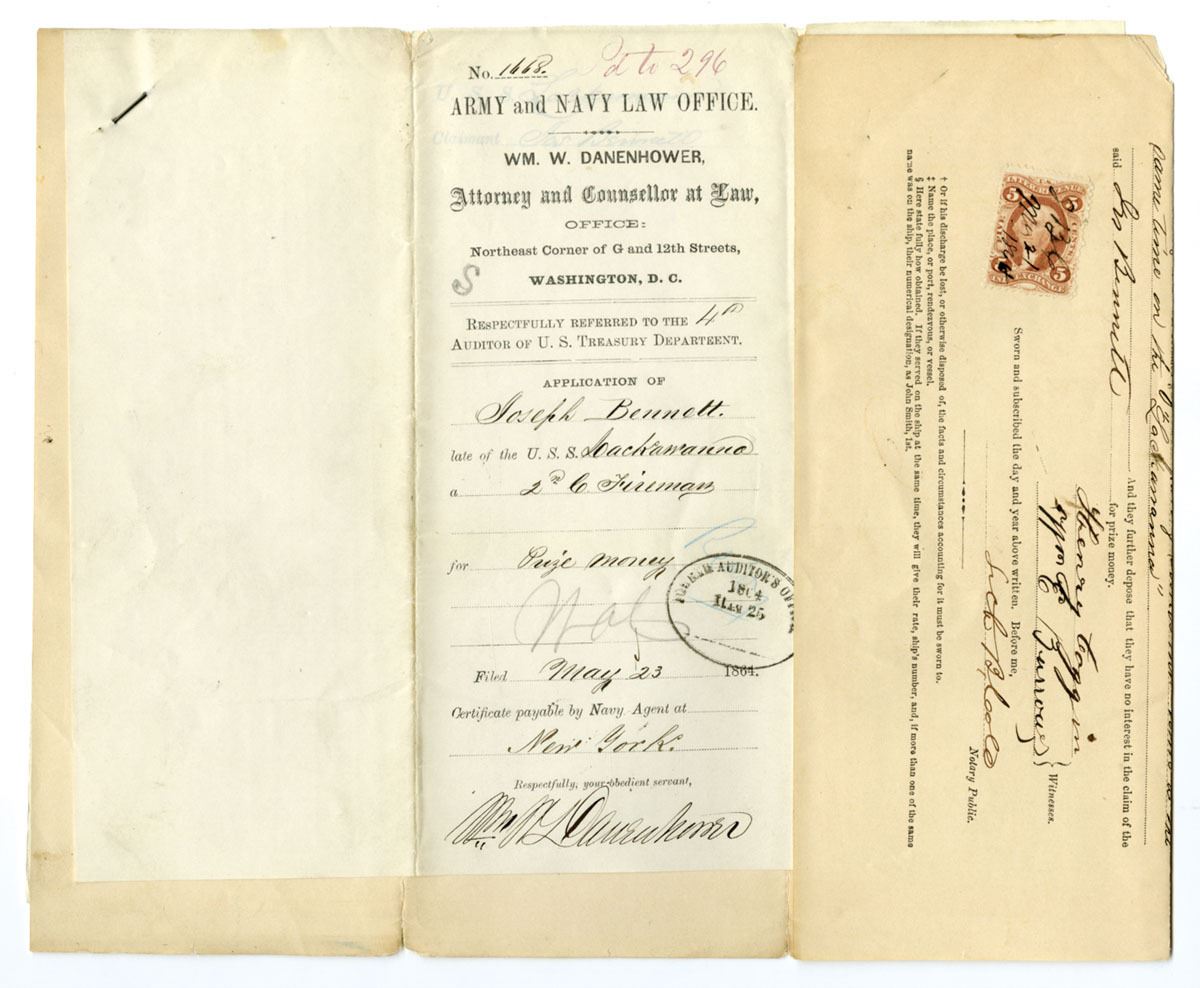 No. 1668. Pd to 296
ARMY and NAVY LAW OFFICE.
Claimant Jos Bennett
WM. W. DANENHOWER,
Attorney and Counsellor at Law,
OFFICE:
Northeast Corner of G and 12th Streets,
WASHINGTON, D. C.
S
RESPECTFULLY REFERRED TO THE 4th
AUDITOR OF U. S. TREASURY DEPARTEENT.
APPLICATION OF
Joseph Bennett.
late of the U. S. S. Lackawanna
a 2d C Fireman
for Prize money
AUDITOR'S OFFICE
1864
MAY 25
Filed May 23 1864.
Certificate payable by Navy Agent at
New York.
Respectfully, your obedient servant,
Wm W Danenhower
same time on the "Lackawanna"
And they further depose that they have no interest in the claim of the
said Jos Bennett for prize money.
Henry Coggin
Wm E Burrows } Witnesses.
Sworn and subscribed the day and year above written. Before me,
Notary Public.
† Or if his discharge be lost, or otherwise disposed of, the facts and circumstances accounting for it must be sworn to.
‡ Name the place, or port, rendezvous, or vessel.
§ Here state fully how obtained. If they served on the ship at the same time, they will give their rate, ship's number, and, if more than one of the same
name was on the ship, their numerical designation, as John Smith, 1st.
5 5
INTER. REVENUE
FIVE CENTS
INL. EXCHANGE
5